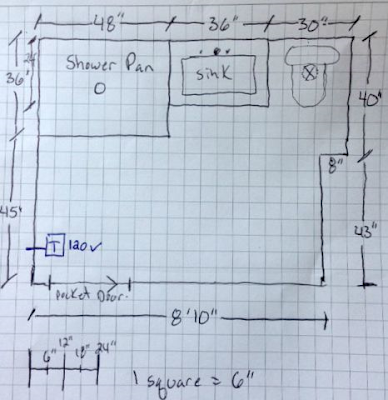 48" 36" 30"
24"
36"
Shower Pan
sink
40"
8"
45"
43"
T 120v
Pocket Door
8'10"
6" 12" 18" 24"
1 square = 6"